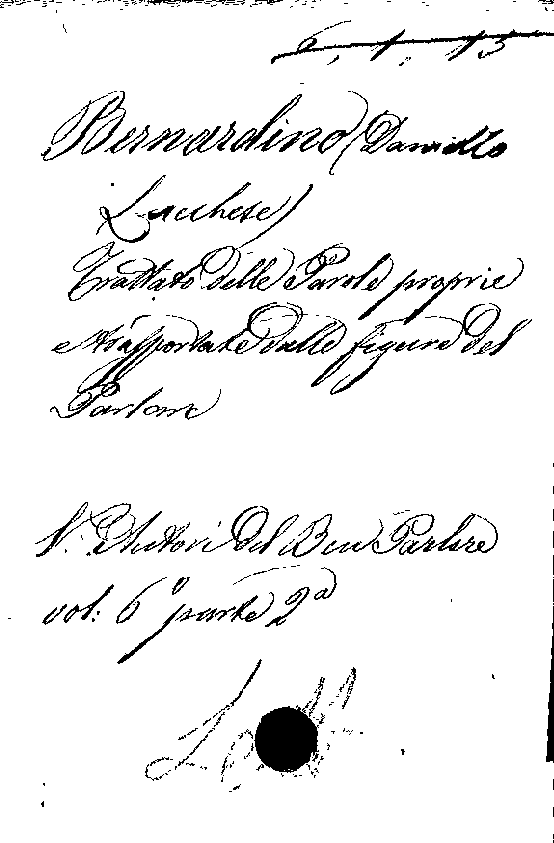 6. 1. 13
Bernardino (Daniello
Lucchese)
Trattato delle Parole proprie
e trasportate dalle figure del
Parlare
V. Autori del Ben Parlare
vol: 6º parte 2ª